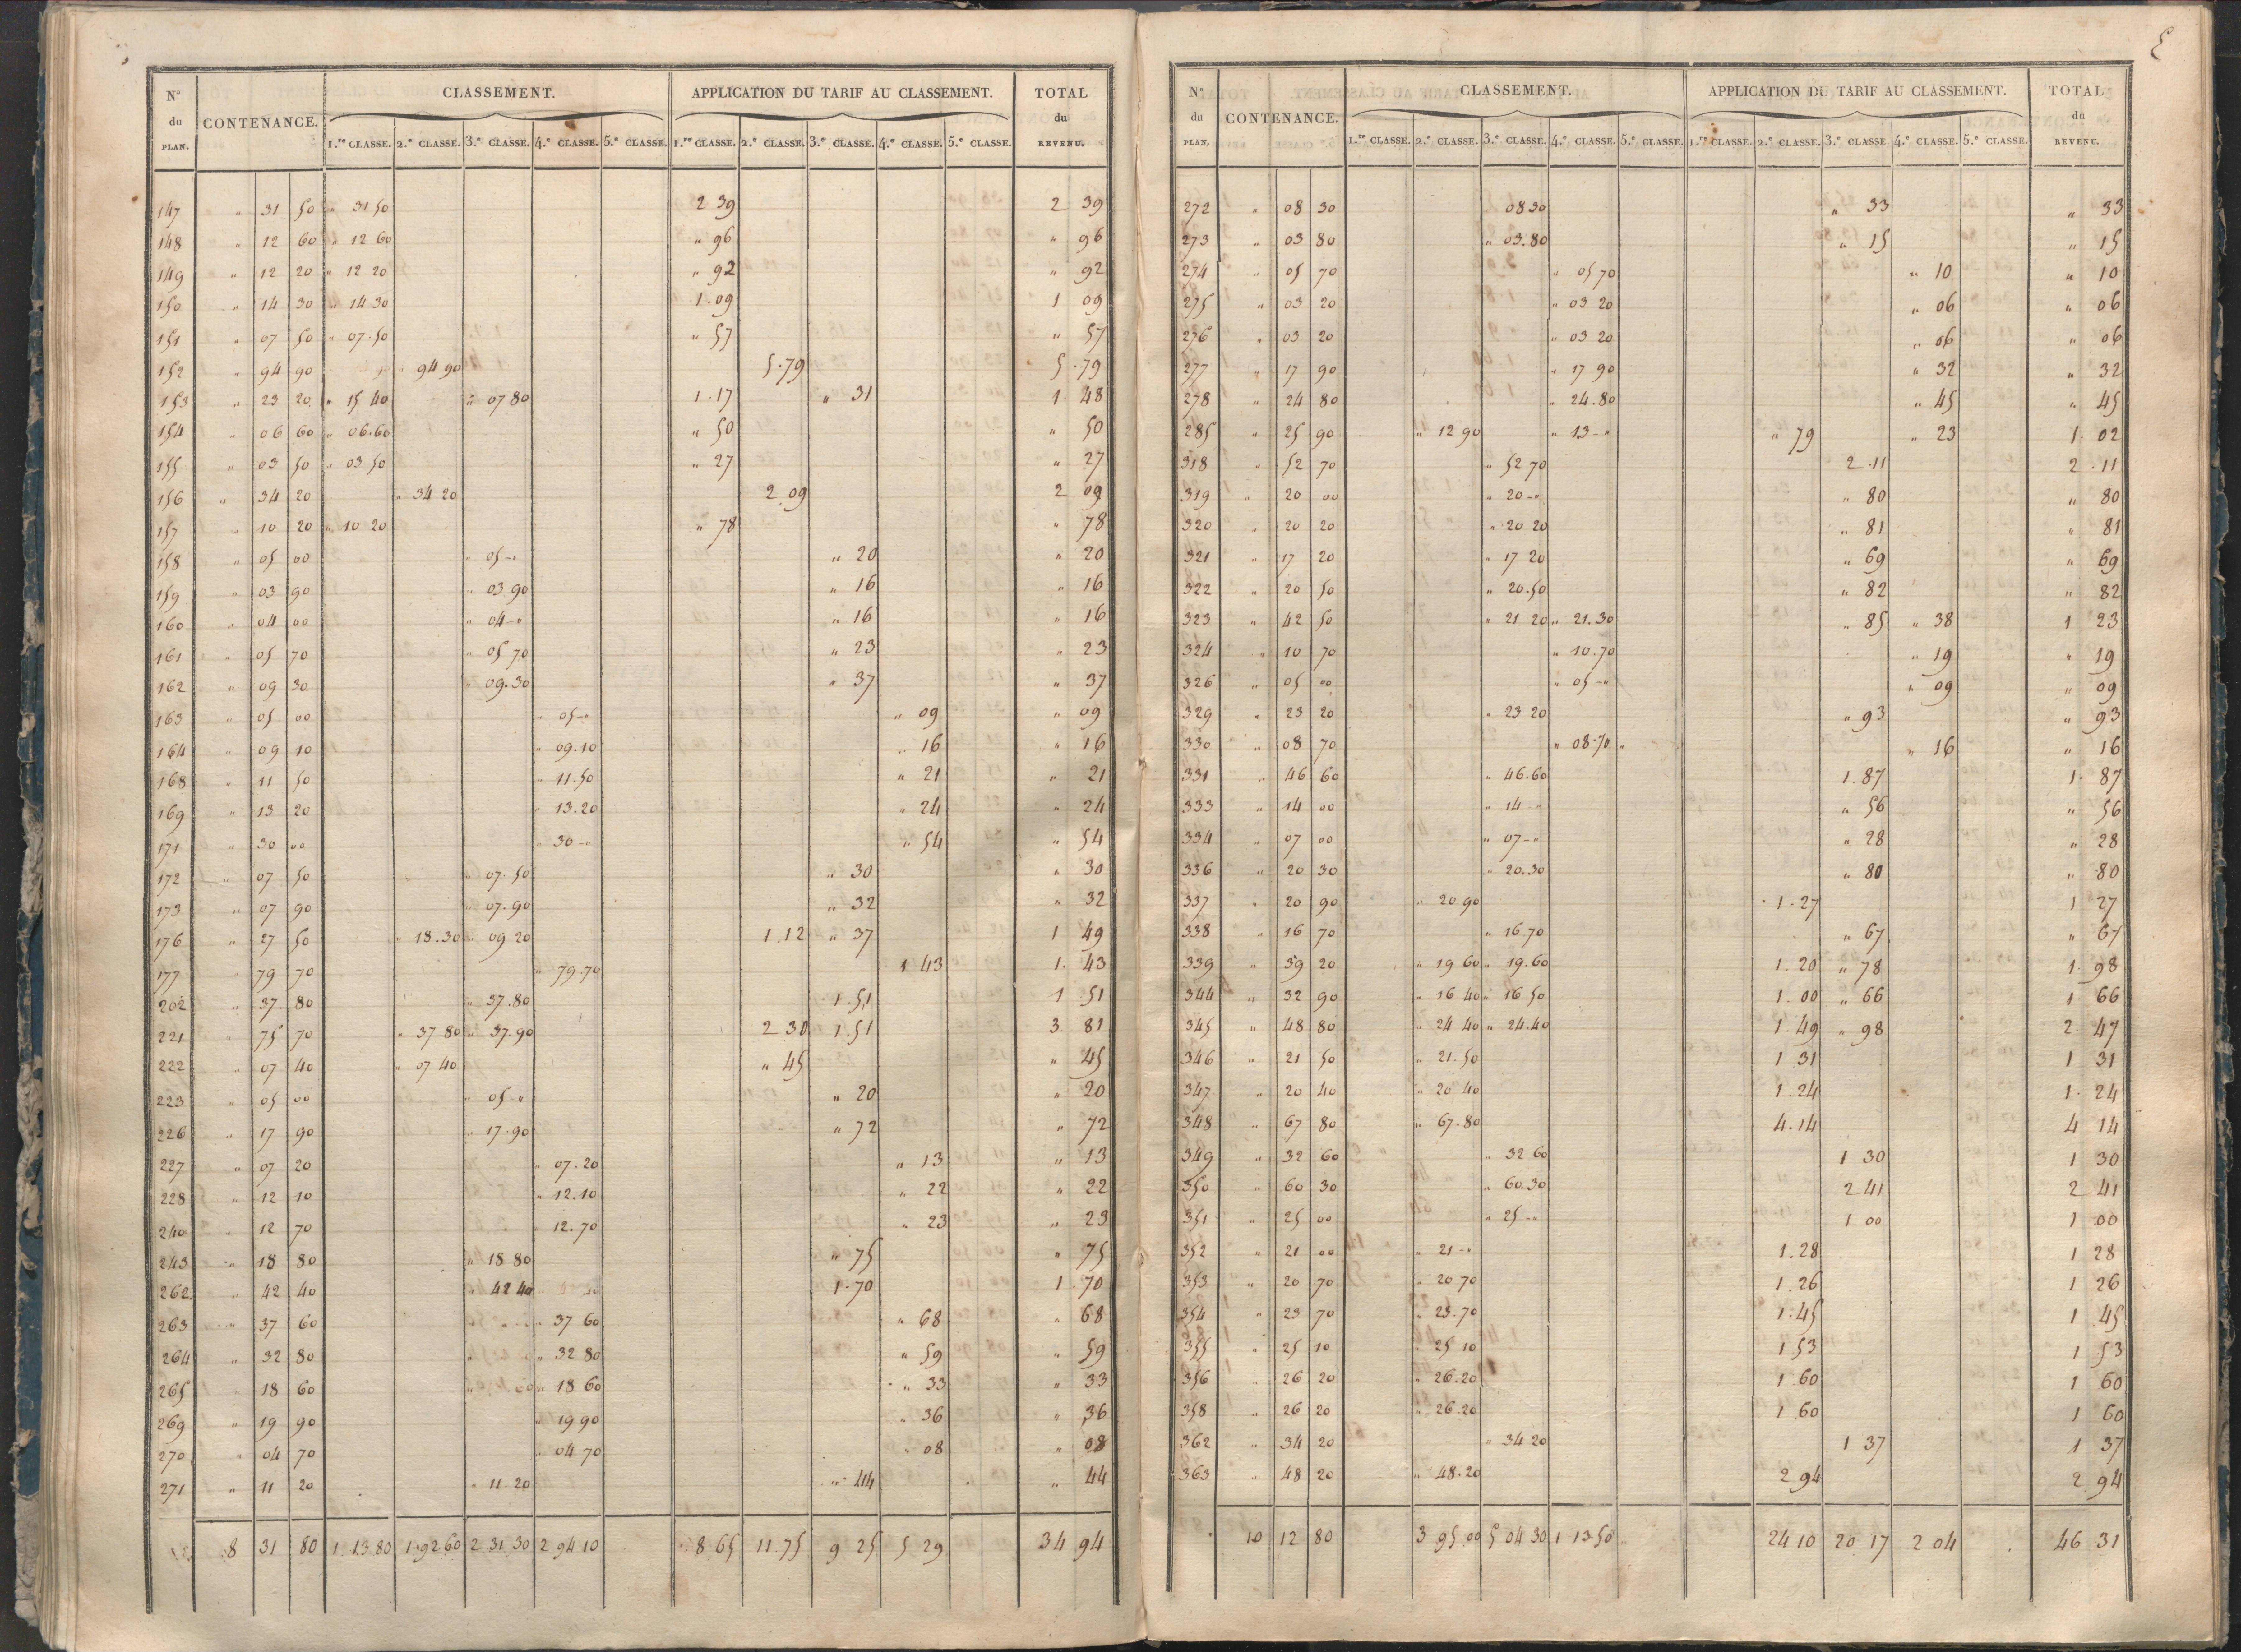 N.º du PLAN. CONTENANCE. CLASSEMENT. APPLICATION DU TARIF AU CLASSEMENT. TOTAL du REVENU.
1.re CLASSE. 2.e CLASSE. 3.e CLASSE. 4.e CLASSE. 5.e CLASSE. 1.re CLASSE. 2.e CLASSE. 3.e CLASSE. 4.e CLASSE. 5.e CLASSE.
147 " 31 50 " 31 50 2 39 2 39
148 " 12 60 " 12 60 " 96 " 96
149 " 12 20 " 12 20 " 92 " 92
150 " 14 30 " 14 30 1.09 1 09
151 " 07 50 " 07.50 " 57 " 57
152 " 94 90 " 94 90 5.79 5.79
153 " 23 20 " 15 40 " 07 80 1.17 " 31 1.48
154 " 06 60 " 06.60 " 50 " 50
155 " 03 50 " 03 50 " 27 " 27
156 " 34 20 " 34 20 2 09 2 09
157 " 10 20 " 10 20 " 78 " 78
158 " 05 00 " 05-" " 20 " 20
159 " 03 90 " 03 90 " 16 " 16
160 " 04 00 " 04-" " 16 " 16
161 " 05 70 " 05 70 " 23 " 23
162 " 09 30 " 09.30 " 37 " 37
163 " 05 00 " 05-" " 09 " 09
164 " 09 10 " 09.10 " 16 " 16
168 " 11 50 " 11.50 " 21 " 21
169 " 13 20 " 13.20 " 24 " 24
171 " 30 00 " 30-" " 54 " 54
172 " 07 50 " 07.50 " 30 " 30
173 " 07 90 " 07.90 " 32 " 32
176 " 27 50 " 18.30 " 09 20 1.12 " 37 1 49
177 " 79 70 " 79.70 1 43 1.43
202 " 37 80 " 37.80 1.51 1 51
221 " 75 70 " 37 80 " 37.90 2 30 1.51 3 81
222 " 07 40 " 07 40 " 45 " 45
223 " 05 00 " 05-" " 20 " 20
226 " 17 90 " 17.90 " 72 " 72
227 " 07 20 " 07.20 " 13 " 13
228 " 12 10 " 12.10 " 22 " 22
240 " 12 70 " 12.70 " 23 " 23
243 " 18 80 " 18 80 " 75 " 75
262 " 42 40 " 42 40 1.70 1.70
263 " 37 60 " 37 60 " 68 " 68
264 " 32 80 " 32 80 " 59 " 59
265 " 18 60 " 18 60 " 33 " 33
269 " 19 90 " 19 90 " 36 " 36
270 " 04 70 " 04 70 " 08 " 08
271 " 11 20 " 11.20 " 44 " 44
8 31 80 1.13 80 1.92 60 2 31 30 2 94 10 8 65 11.75 9 25 5 29 34 94
N.º du PLAN. CONTENANCE. CLASSEMENT. APPLICATION DU TARIF AU CLASSEMENT. TOTAL du REVENU.
1.re CLASSE. 2.e CLASSE. 3.e CLASSE. 4.e CLASSE. 5.e CLASSE. 1.re CLASSE. 2.e CLASSE. 3.e CLASSE. 4.e CLASSE. 5.e CLASSE.
272 " 08 30 08 30 " 33 " 33
273 " 03 80 " 03.80 " 15 " 15
274 " 05 70 " 05 70 " 10 " 10
275 " 03 20 " 03 20 " 06 " 06
276 " 03 20 " 03 20 " 06 " 06
277 " 17 90 " 17 90 " 32 " 32
278 " 24 80 " 24.80 " 45 " 45
285 " 25 90 " 12 90 " 13-" " 79 " 23 1.02
318 " 52 70 " 52 70 2.11 2.11
319 " 20 00 " 20-" " 80 " 80
320 " 20 20 " 20 20 " 81 " 81
321 " 17 20 " 17 20 " 69 " 69
322 " 20 50 " 20.50 " 82 " 82
323 " 42 50 " 21 20 " 21.30 " 85 " 38 1 23
324 " 10 70 " 10.70 " 19 " 19
326 " 05 00 " 05-" " 09 " 09
329 " 23 20 " 23 20 " 93 " 93
330 " 08 70 " 08.70 " 16 " 16
331 " 46 60 " 46.60 1.87 1.87
333 " 14 00 " 14-" " 56 " 56
334 " 07 00 " 07-" " 28 " 28
336 " 20 30 " 20.30 " 80 " 80
337 " 20 90 " 20 90 1.27 1 27
338 " 16 70 " 16 70 " 67 " 67
339 " 39 20 " 19 60 " 19.60 1.20 " 78 1.98
344 " 32 90 " 16 40 " 16 50 1.00 " 66 1.66
345 " 48 80 " 24 40 " 24.40 1.49 " 98 2.47
346 " 21 50 " 21.50 1 31 1 31
347 " 20 40 " 20 40 1.24 1.24
348 " 67 80 " 67.80 4.14 4 14
349 " 32 60 " 32 60 1 30 1 30
350 " 60 30 " 60.30 2 41 2 41
351 " 25 00 " 25-" 1 00 1 00
352 " 21 00 " 21-" 1.28 1 28
353 " 20 70 " 20 70 1.26 1 26
354 " 23 70 " 23.70 1.45 1 45
355 " 25 10 " 25 10 1 53 1 53
356 " 26 20 " 26.20 1 60 1 60
358 " 26 20 " 26.20 1 60 1 60
362 " 34 20 " 34 20 1 37 1 37
363 " 48 20 " 48.20 2 94 2 94
10 12 80 3 95 00 5 04 30 1 13 50 24 10 20 17 2 04 46 31